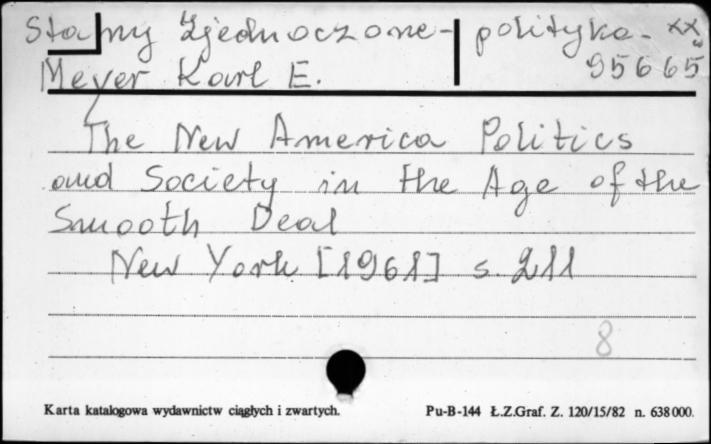 Stany Zjednoczone - polityka - XX w
Meyer Karl E. 95665
The New America Politics
and Society in the Age of the
Smooth Deal
New York [1961] s. 211
8
Karta katalogowa wydawnictw ciągłych i zwartych. Pu-B-144 Ł.Z.Graf. Z. 120/15/82 n. 638000.